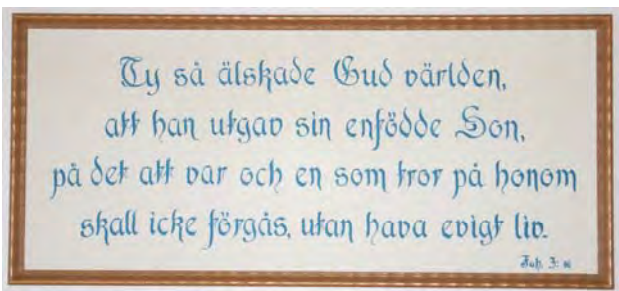 Ty så älskade Gud världen,
att han utgav sin enfödde Son,
på det att var och en som tror på honom
skall icke förgås, utan hava evigt liv.
Joh. 3: 16